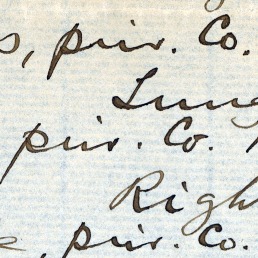 s, priv. Co.
Lung
priv. Co.
Righ
e, priv. Co.